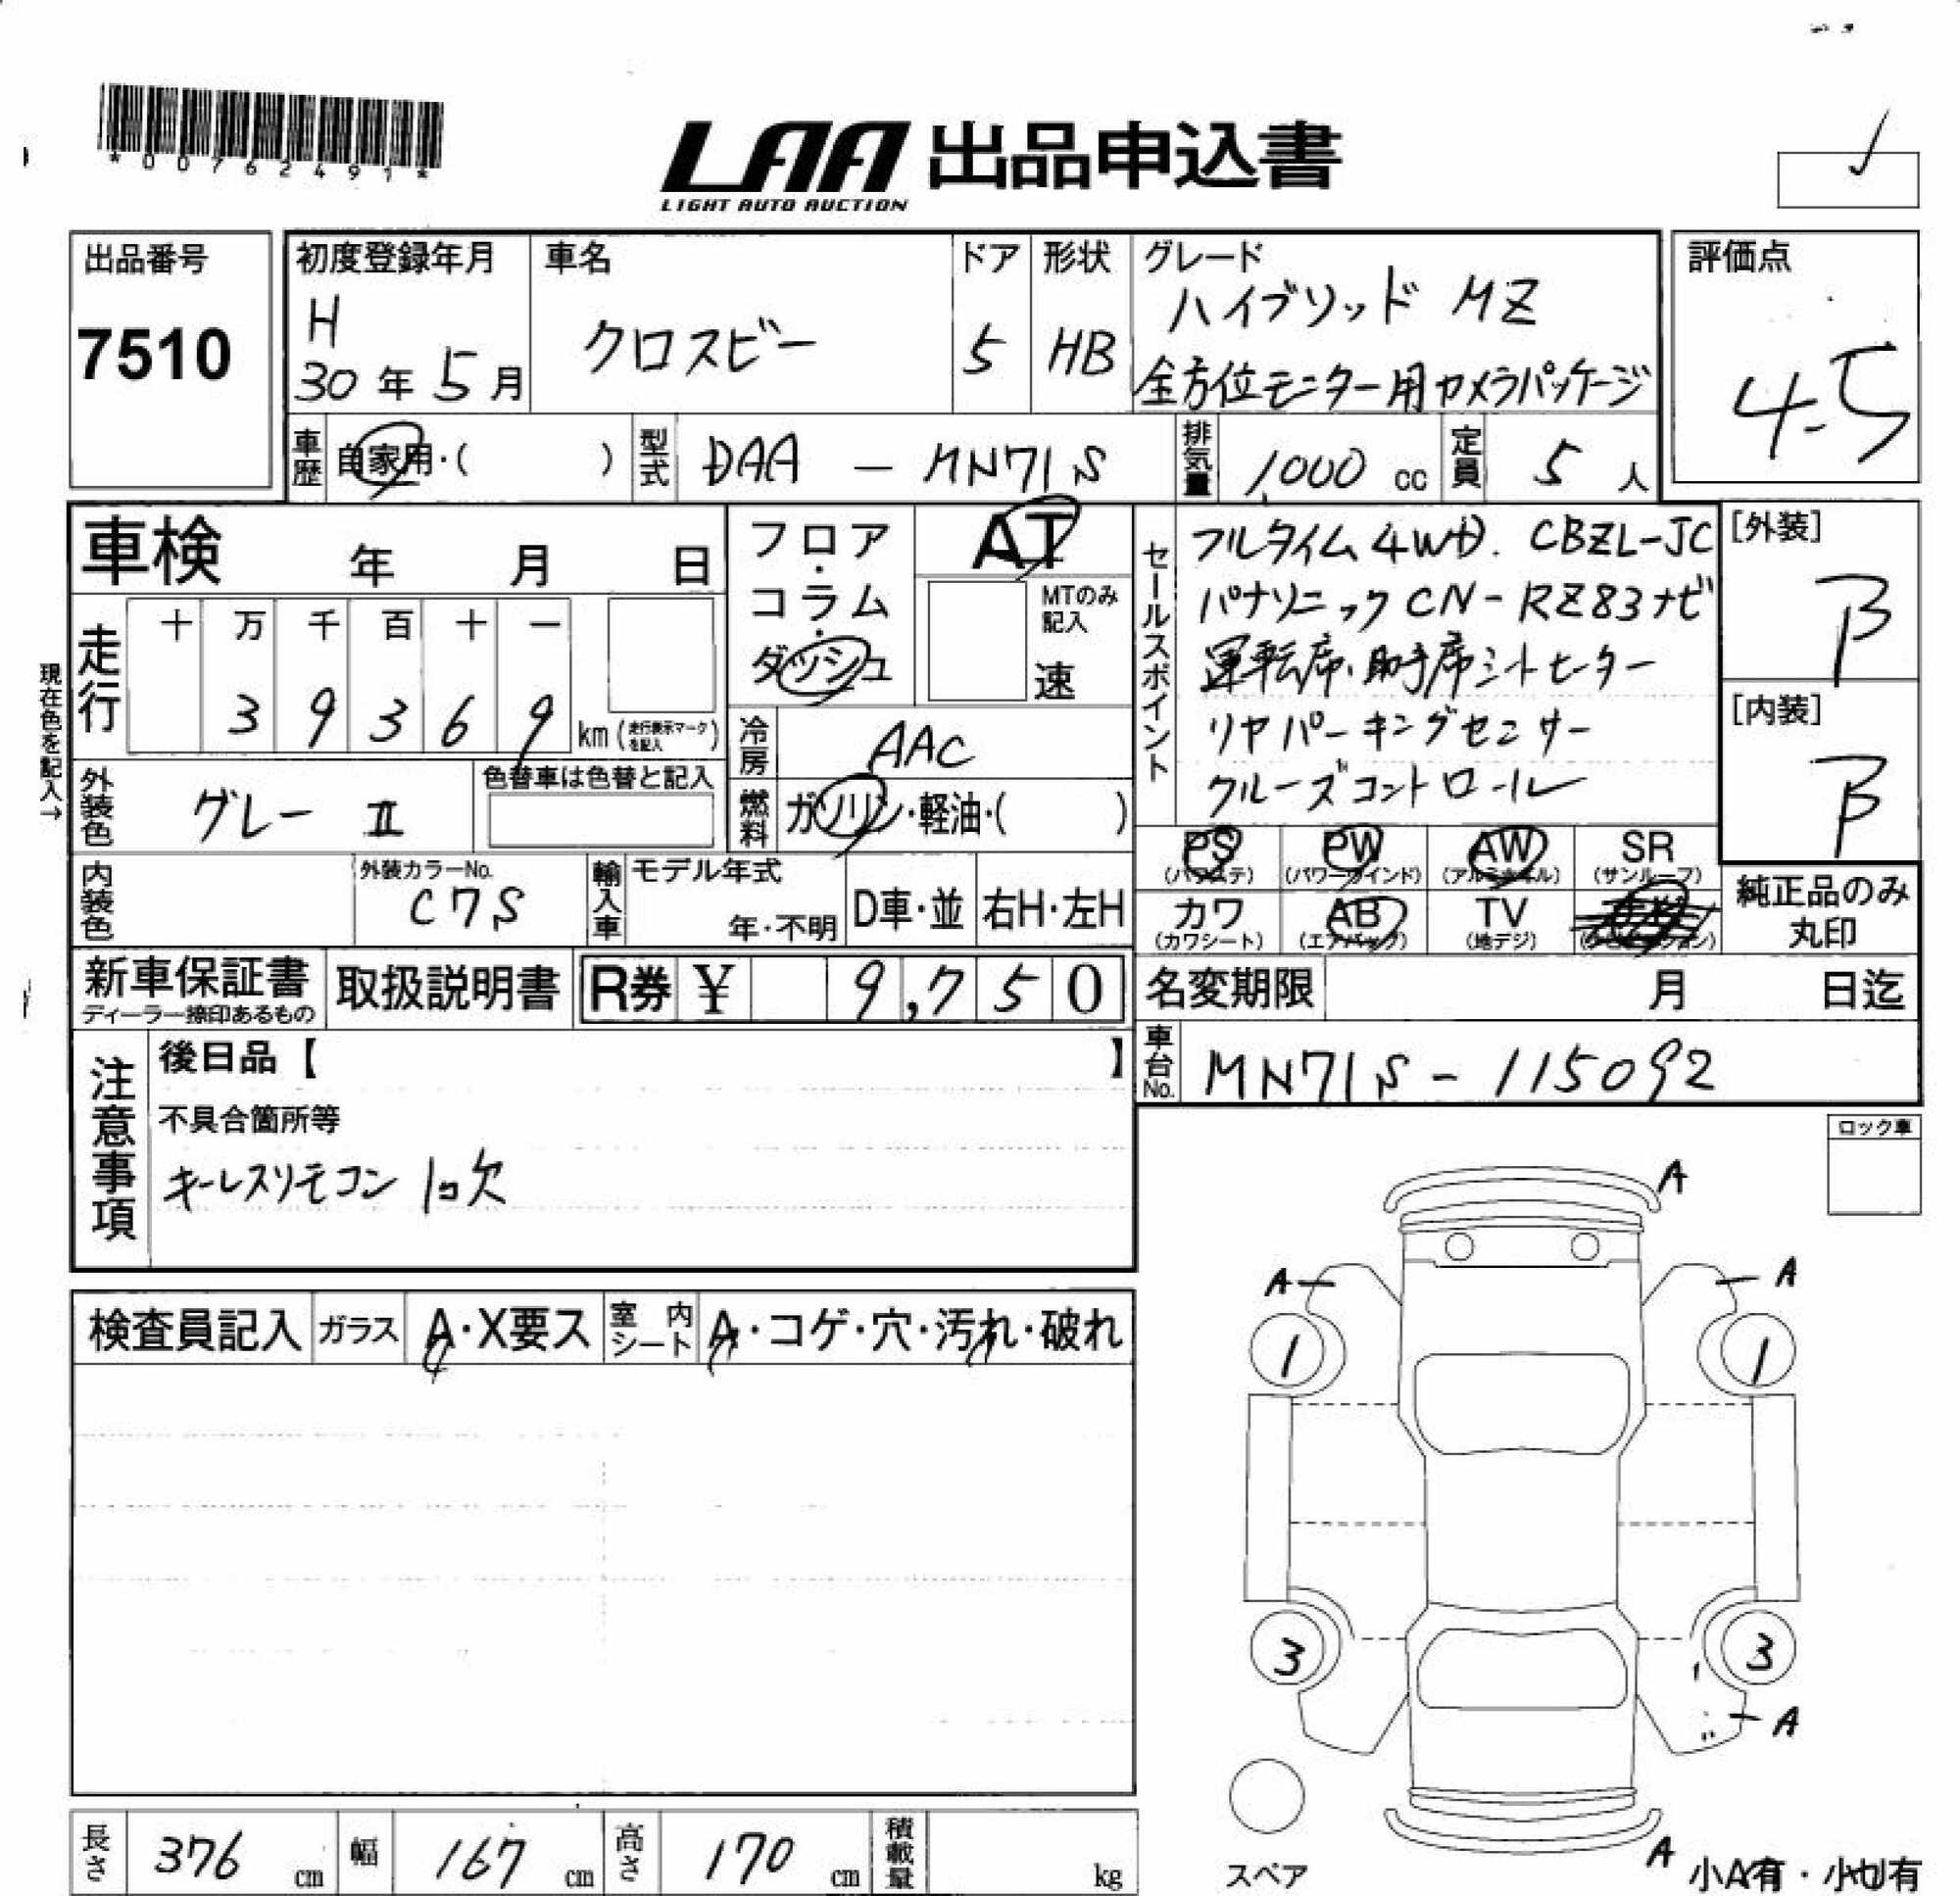 *00762491*
LAA 出品申込書
LIGHT AUTO AUCTION
出品番号
7510
初度登録年月
H
30年5月
車名
クロスビー
ドア
5
形状
HB
グレード
ハイブリッド MZ
全方位モニター用カメラパッケージ
評価点
4.5
車歴
自家用・( )
型式
DAA - MN71S
排気量
1,000 cc
定員
5 人
車検 年 月 日
走行
十 万 千 百 十 一
3 9 3 6 9 km (走行表示マークを記入)
現在色を記入→
外装色
グレー Ⅱ
色替車は色替と記入
内装色
外装カラーNo.
C7S
輸入車
モデル年式
年・不明
D車・並
右H・左H
フロア・コラム・ダッシュ
AT
MTのみ記入
速
冷房
AAC
燃料
ガソリン・軽油・( )
セールスポイント
フルタイム4WD. CBZL-JC
パナソニックCN-RZ83ナビ
運転席・助手席シートヒーター
リヤパーキングセンサー
クルーズコントロール
[外装]
B
[内装]
B
PS
(パワステ)
PW
(パワーウインド)
AW
(アルミホイル)
SR
(サンルーフ)
カワ
(カワシート)
AB
(エアバック)
TV
(地デジ)
純正品のみ
丸印
新車保証書
ディーラー捺印あるもの
取扱説明書
R券 ¥ 9,750
名変期限 月 日迄
車台No.
MN71S-115092
注意事項
後日品【 】
不具合箇所等
キーレスリモコン 1コ欠
ロック車
検査員記入
ガラス
A・X要ス
室内シート
A・コゲ・穴・汚れ・破れ
A
A
A
1
1
3
3
A
A
スペア
小A有・小凹有
長さ
376 cm
幅
167 cm
高さ
170 cm
積載量
kg